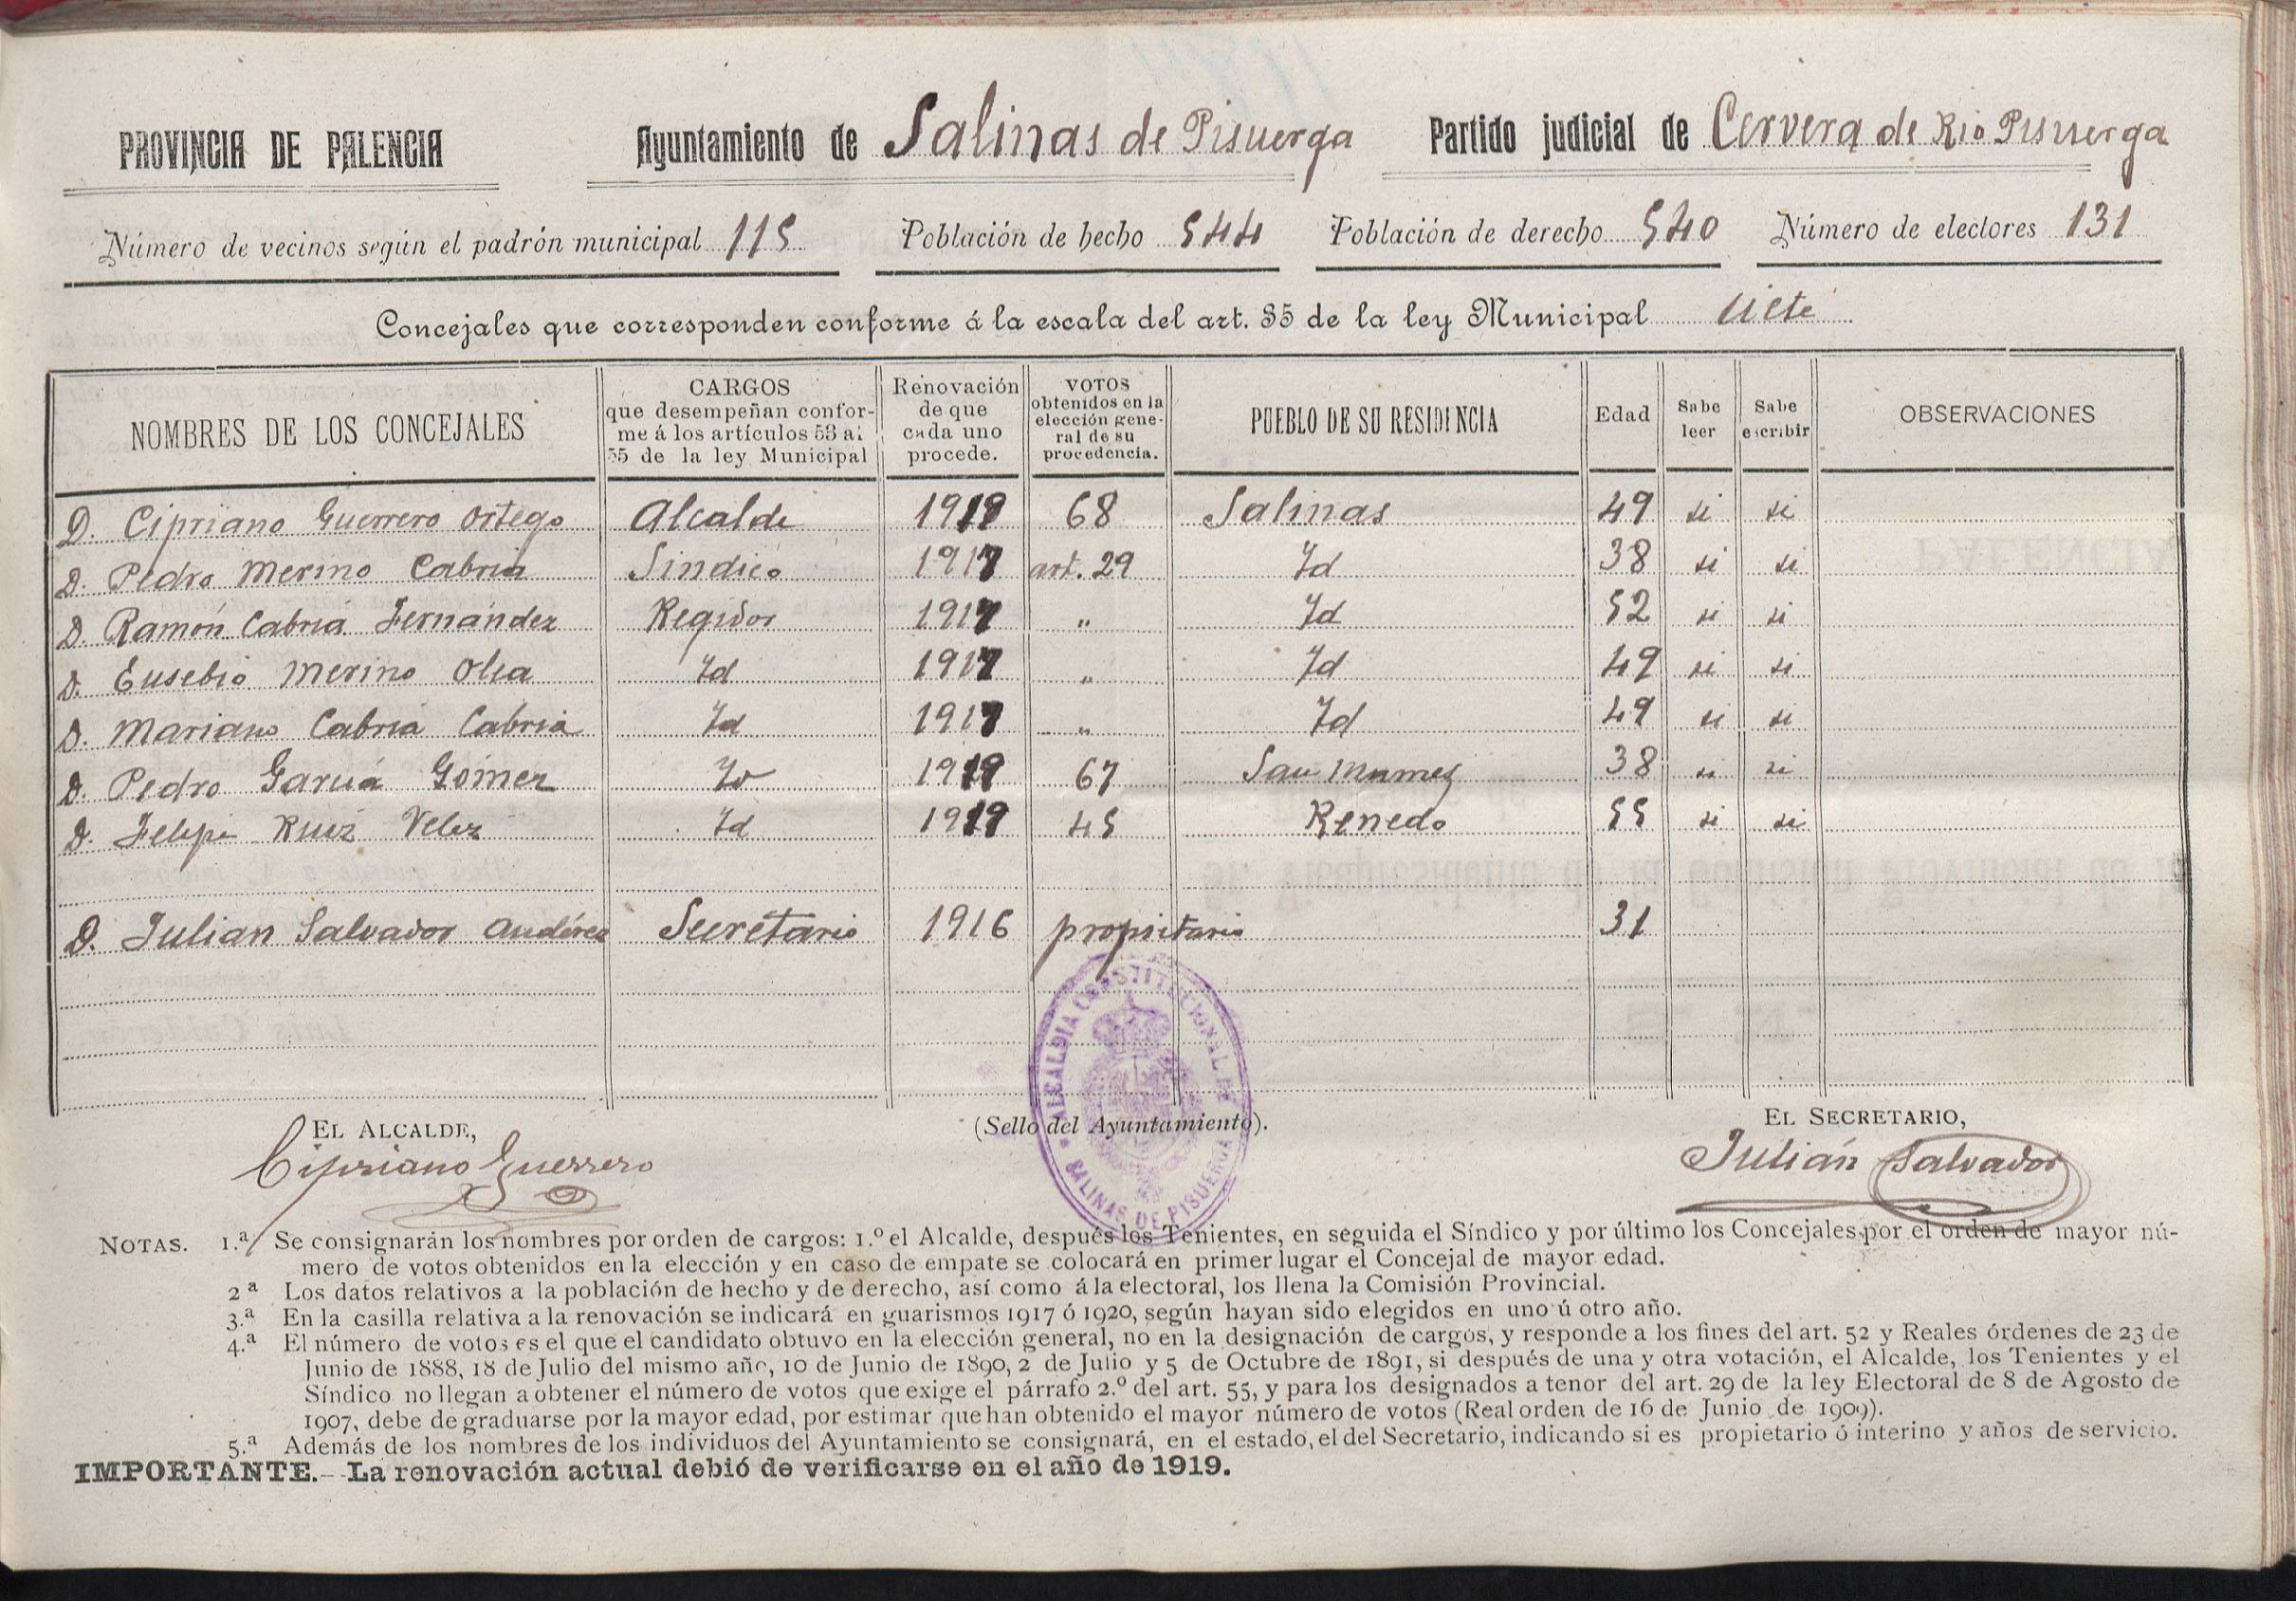 PROVINCIA DE PALENCIA Ayuntamiento de Salinas de Pisuerga Partido judicial de Cervera de Rio Pisuerga
Número de vecinos según el padrón municipal 115 Población de hecho 544 Población de derecho 540 Número de electores 131
Concejales que corresponden conforme á la escala del art. 35 de la ley Municipal siete
NOMBRES DE LOS CONCEJALES CARGOS que desempeñan confor- me á los artículos 53 al 55 de la ley Municipal Renovación de que cada uno procede. VOTOS obtenidos en la elección gene- ral de su procedencia. PUEBLO DE SU RESIDENCIA Edad Sabe leer Sabe escribir OBSERVACIONES
D. Cipriano Guerrero Ortego Alcalde 1919 68 Salinas 49 si si
D. Pedro Merino Cabria Sindico 1917 art. 29 Id 38 si si
D. Ramón Cabria Fernández Regidor 1917 " Id 52 si si
D. Eusebio Merino Olea Id 1917 " Id 49 si si
D. Mariano Cabria Cabria Id 1917 " Id 49 si si
D. Pedro García Gómez Id 1919 67 San Mames 38 si si
D. Felipe Ruiz Velez Id 1919 45 Renedo 55 si si
D. Julian Salvador Andérez Secretario 1916 propietario 31
EL ALCALDE, (Sello del Ayuntamiento). EL SECRETARIO,
Cipriano Guerrero ALCALDIA CONSTITUCIONAL DE SALINAS DE PISUERGA Julián Salvador
NOTAS. 1.ª Se consignarán los nombres por orden de cargos: 1.º el Alcalde, después los Tenientes, en seguida el Síndico y por último los Concejales por el orden de mayor nú-
mero de votos obtenidos en la elección y en caso de empate se colocará en primer lugar el Concejal de mayor edad.
2ª Los datos relativos a la población de hecho y de derecho, así como á la electoral, los llena la Comisión Provincial.
3.ª En la casilla relativa a la renovación se indicará en guarismos 1917 ó 1920, según hayan sido elegidos en uno ú otro año.
4.ª El número de votos es el que el candidato obtuvo en la elección general, no en la designación de cargos, y responde a los fines del art. 52 y Reales órdenes de 23 de
Junio de 1888, 18 de Julio del mismo año, 10 de Junio de 1890, 2 de Julio y 5 de Octubre de 1891, si después de una y otra votación, el Alcalde, los Tenientes y el
Síndico no llegan a obtener el número de votos que exige el párrafo 2.º del art. 55, y para los designados a tenor del art. 29 de la ley Electoral de 8 de Agosto de
1907, debe de graduarse por la mayor edad, por estimar que han obtenido el mayor número de votos (Real orden de 16 de Junio de 1909).
5.ª Además de los nombres de los individuos del Ayuntamiento se consignará, en el estado, el del Secretario, indicando si es propietario ó interino y años de servicio.
IMPORTANTE.- La renovación actual debió de verificarse en el año de 1919.